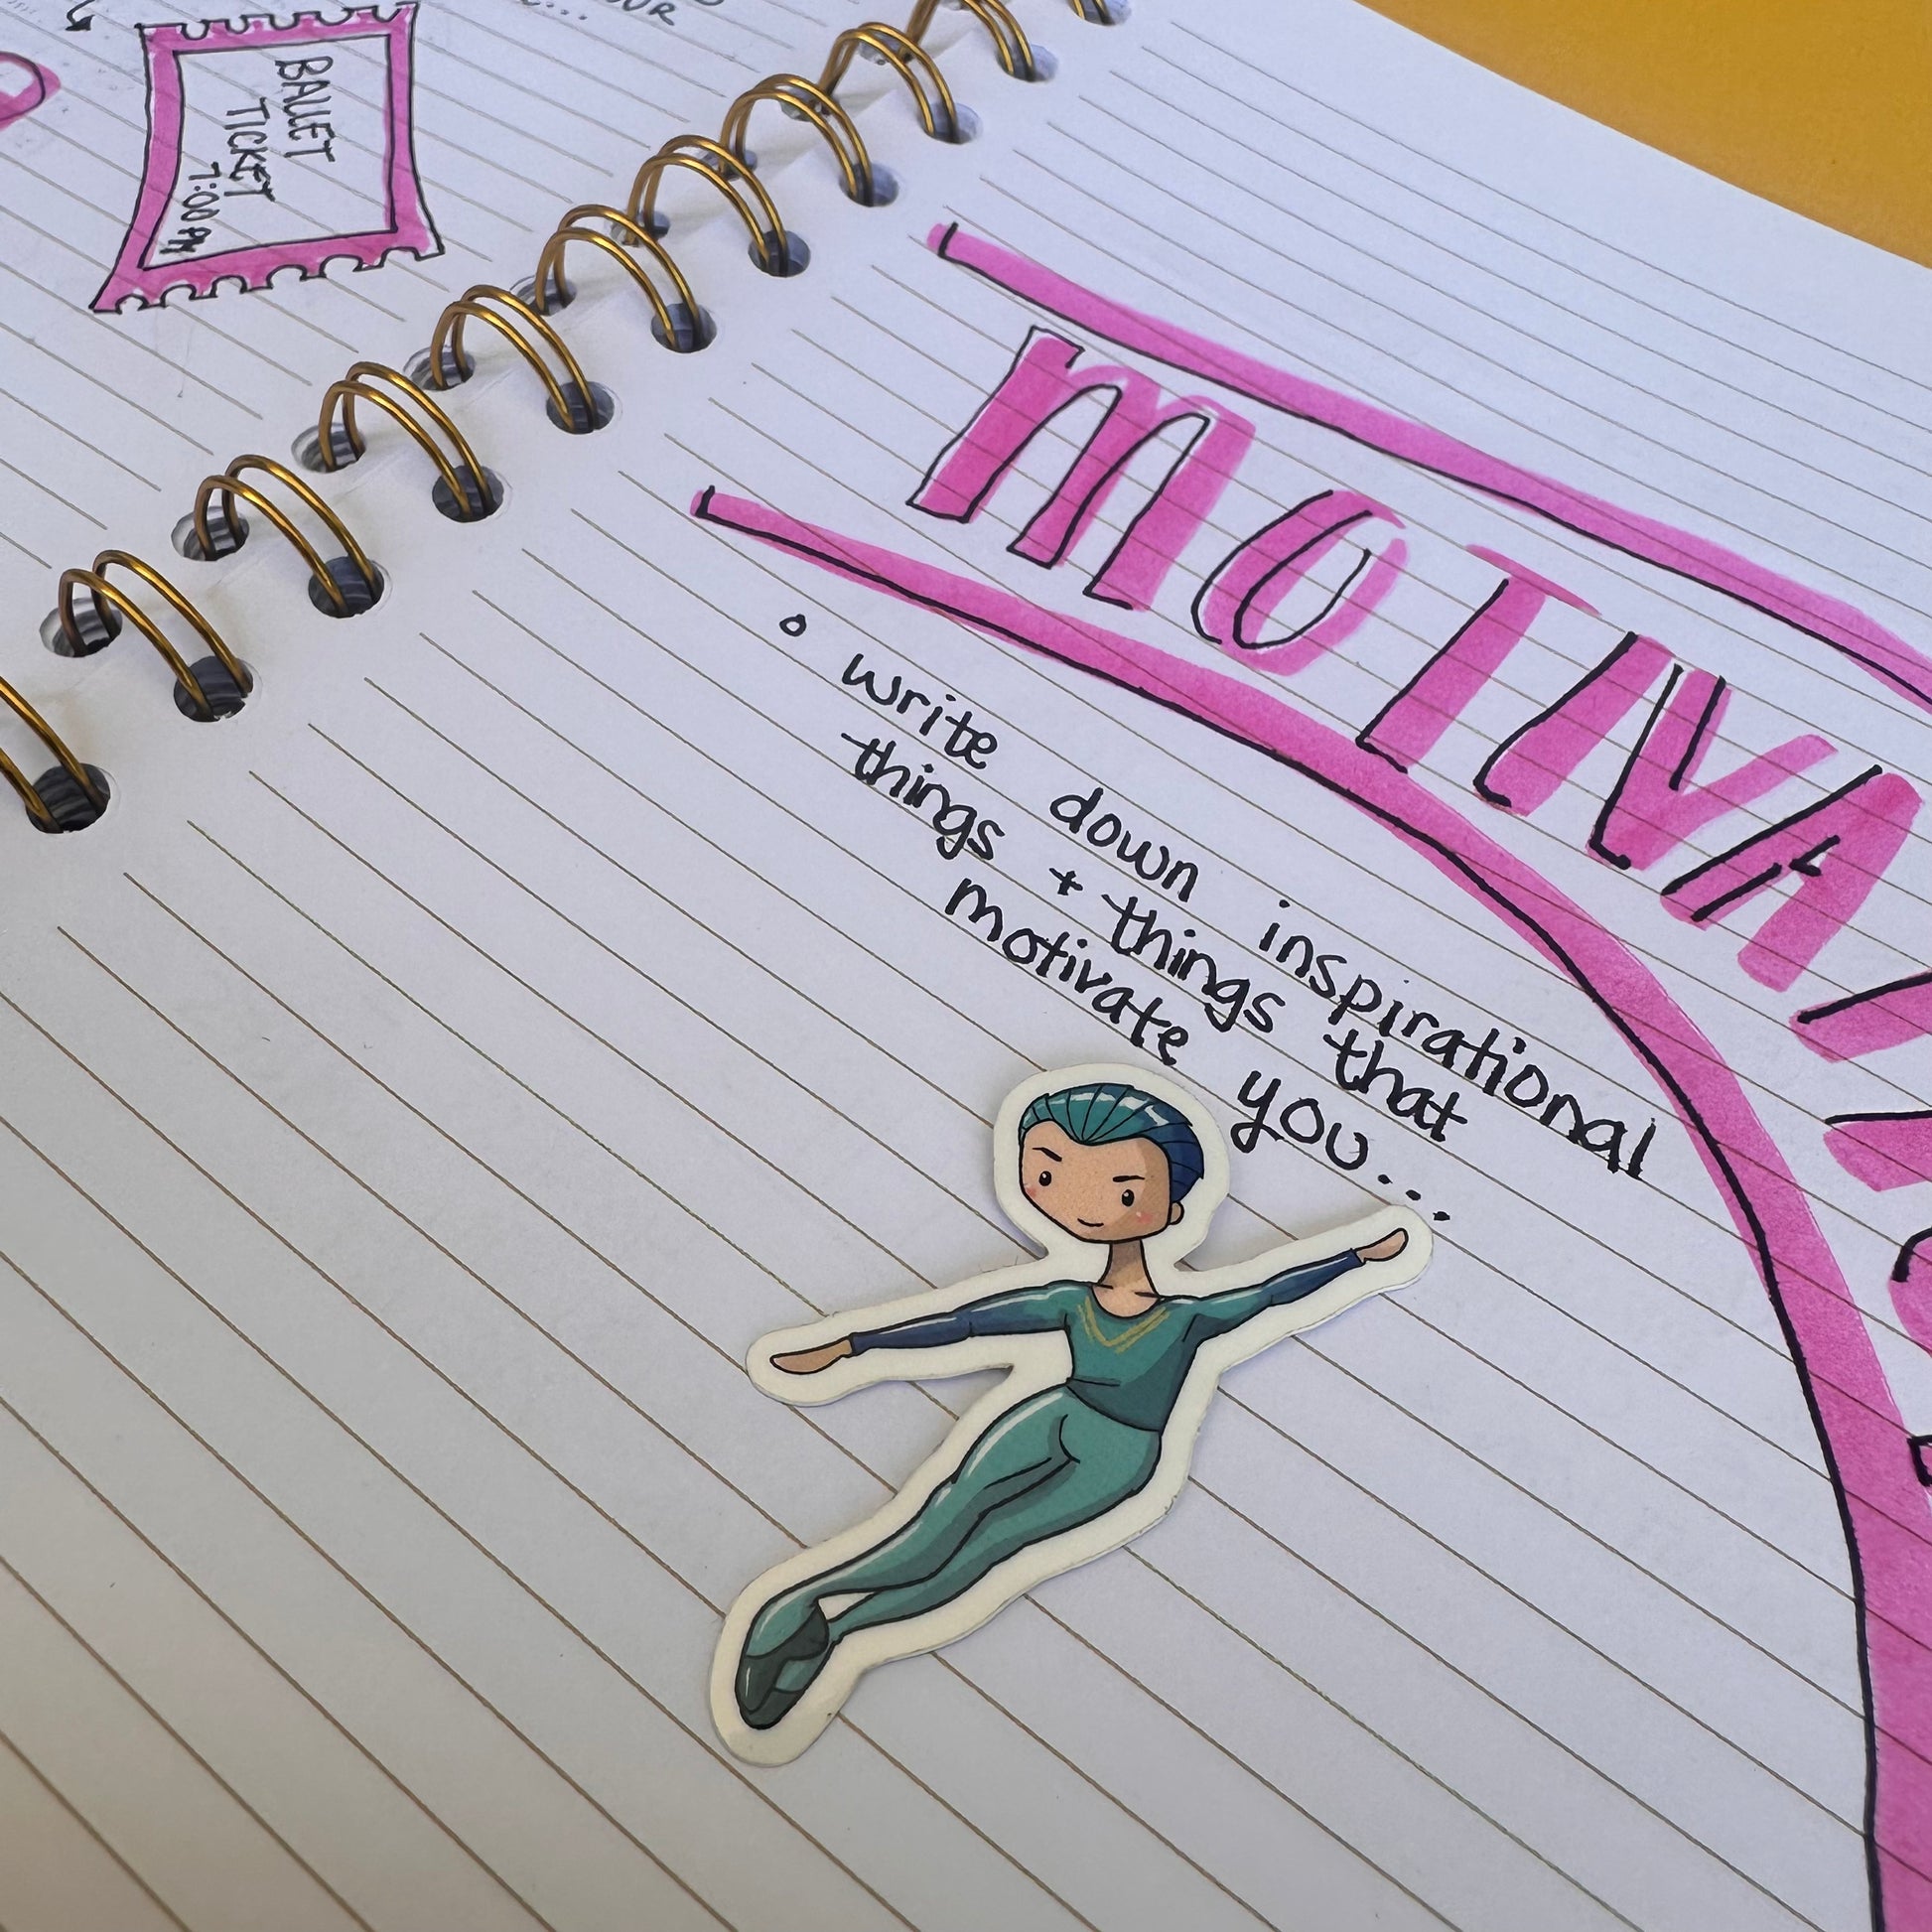 BALLET
TICKET
7:00 PM
MOTIVA
write down inspirational
things + things that
motivate you...